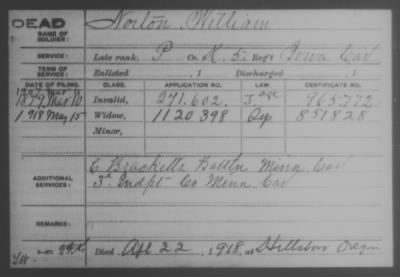 DEAD
Norton William
NAME OF SOLDIER:
SERVICE:
Late rank, P Co. K, 5 Reg't Iowa Cav
TERM OF SERVICE:
Enlisted , 1 Discharged , 1
DATE OF FILING. CLASS. APPLICATION NO. LAW. CERTIFICATE NO.
1879 Mar 10 Invalid, 271,602. 965,772
1918 May 15 Widow, 1120398 851828
Minor,
ADDITIONAL SERVICES:
C Bracketts Battln Minn Cav
3d Indpt Co Minn Cav
REMARKS:
Died Apl 22, 1918, at Hillsboro Oregon